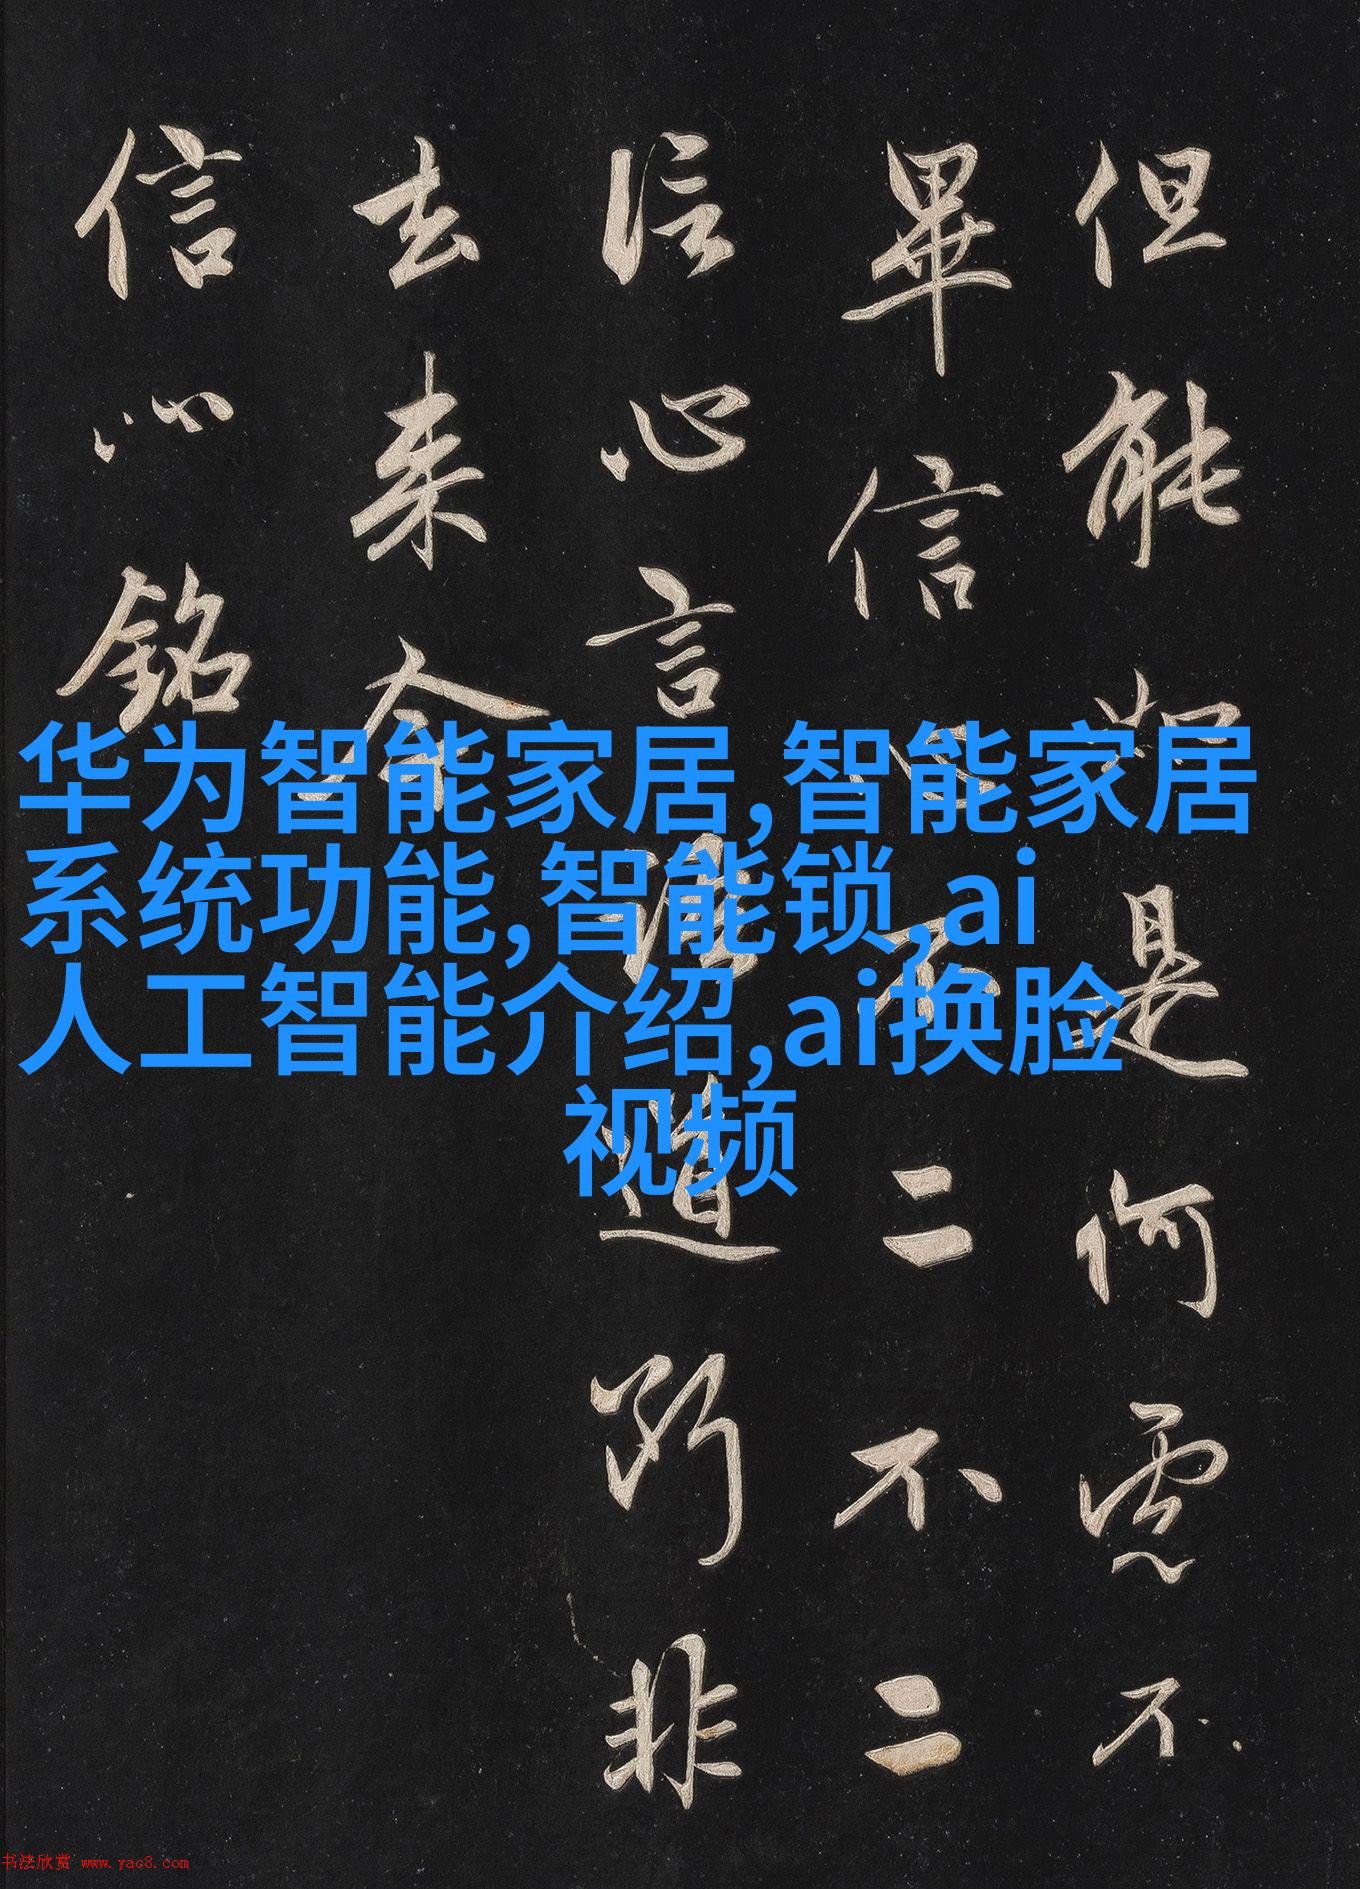 但能如是何慮不
畢信心不二不二
信心言語道斷非
去来今
信心銘
华为智能家居,智能家居
系统功能,智能锁,ai
人工智能介绍,ai换脸
视频
书法欣赏 www.yac8.com